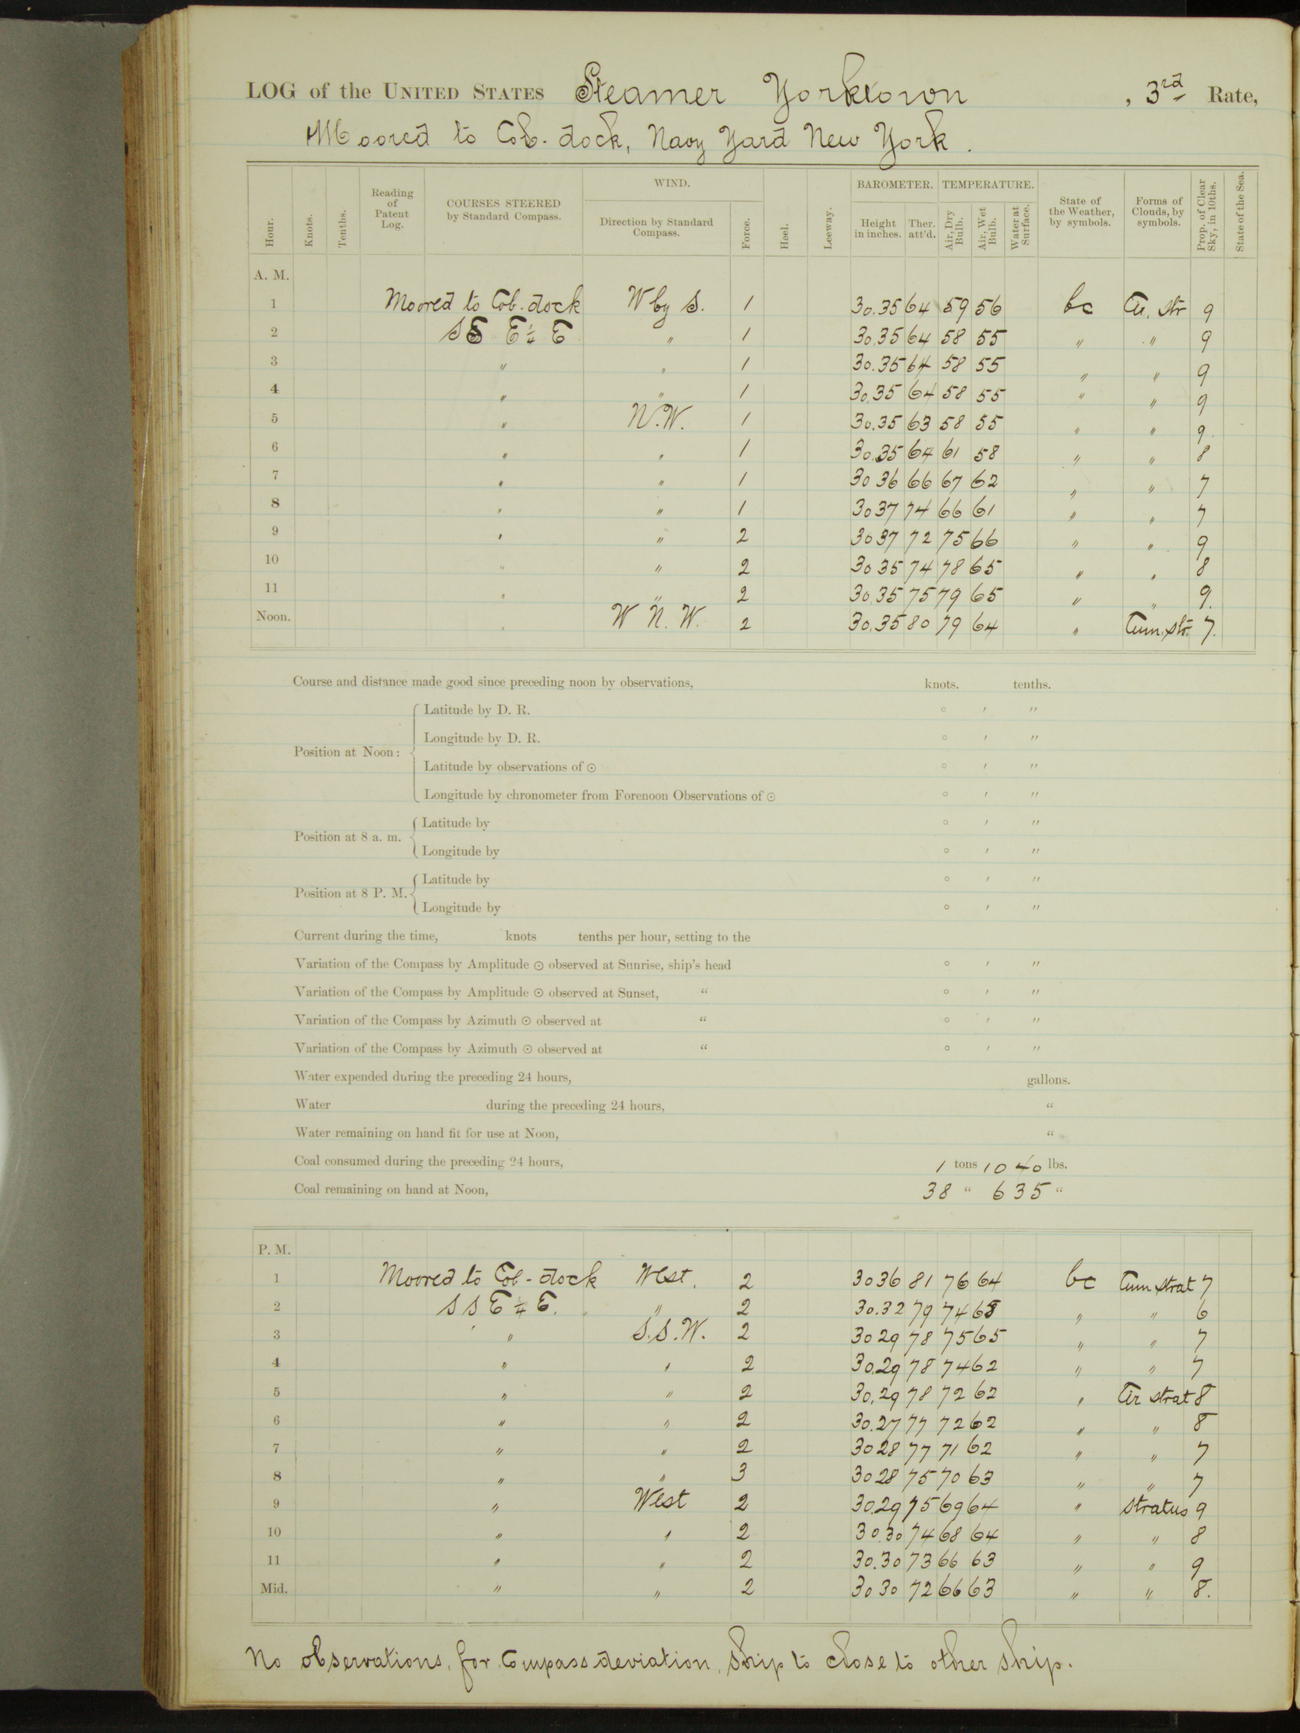 LOG of the UNITED STATES Steamer Yorktown, 3rd Rate,
Moored to Cob. dock, Navy Yard New York.
Hour. Knots. Tenths. Reading of Patent Log. COURSES STEERED by Standard Compass. WIND. Direction by Standard Compass. Force. Heel. Leeway. BAROMETER. Height in inches. Ther. att'd. TEMPERATURE. Air, Dry Bulb. Air, Wet Bulb. Water at Surface. State of the Weather, by symbols. Forms of Clouds, by symbols. Prop. of Clear Sky, in 10ths. State of the Sea.
A. M.
1 Moored to Cob. dock W by S. 1 30.35 64 59 56 bc Cir. str 9
2 SSE E¼E " 1 30.35 64 58 55 " " 9
3 " " 1 30.35 64 58 55 " " 9
4 " " 1 30.35 64 58 55 " " 9
5 " N.W. 1 30.35 63 58 55 " " 9.
6 " " 1 30.35 64 61 58 " " 8
7 " " 1 30 36 66 67 62 " " 7
8 " " 1 30 37 74 66 61 " " 7
9 " " 2 30 37 72 75 66 " " 9
10 " " 2 30 35 74 78 65 " " 8
11 " " 2 30.35 75 79 65 " " 9.
Noon. " W N. W. 2 30.35 80 79 64 " Cum. str. 7.
Course and distance made good since preceding noon by observations, knots. tenths.
Position at Noon: Latitude by D. R. ° ′ ″
Longitude by D. R. ° ′ ″
Latitude by observations of ⊙ ° ′ ″
Longitude by chronometer from Forenoon Observations of ⊙ ° ′ ″
Position at 8 a. m. Latitude by ° ′ ″
Longitude by ° ′ ″
Position at 8 P. M. Latitude by ° ′ ″
Longitude by ° ′ ″
Current during the time, knots tenths per hour, setting to the
Variation of the Compass by Amplitude ⊙ observed at Sunrise, ship's head ° ′ ″
Variation of the Compass by Amplitude ⊙ observed at Sunset, " ° ′ ″
Variation of the Compass by Azimuth ⊙ observed at " ° ′ ″
Variation of the Compass by Azimuth ⊙ observed at " ° ′ ″
Water expended during the preceding 24 hours, gallons.
Water during the preceding 24 hours, "
Water remaining on hand fit for use at Noon, "
Coal consumed during the preceding 24 hours, 1 tons 1040 lbs.
Coal remaining on hand at Noon, 38 " 635 "
P. M.
1 Moored to Cob-dock West. 2 30 36 81 76 64 bc Cum strat 7
2 SSE¼E. " 2 30.32 79 74 65 " " 6
3 " S.S.W. 2 30 29 78 75 65 " " 7
4 " " 2 30.29 78 74 62 " " 7
5 " " 2 30.29 78 72 62 " Cir strat 8
6 " " 2 30.27 77 72 62 " " 8
7 " " 2 30 28 77 71 62 " " 7
8 " " 3 30 28 75 70 63 " " 7
9 " West 2 30.29 75 69 64 " stratus 9
10 " " 2 30.30 74 68 64 " " 8
11 " " 2 30.30 73 66 63 " " 9
Mid. " " 2 30 30 72 66 63 " " 8.
No observations, for Compass deviation, Ship to close to other ship.